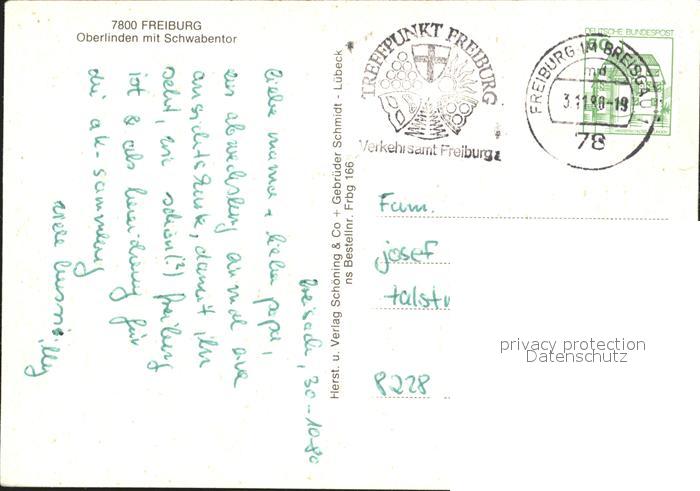 7800 FREIBURG
Oberlinden mit Schwabentor
breisach, 30-10-80
liebe mama + lieber papa,
zur abwechslung einmal eine
ansichtskarte, damit ihr
seht, wie schön(?) freiburg
ist & als bereicherung für
die ak-sammlung
viele bussi
Herst. u. Verlag Schöning & Co + Gebrüder Schmidt - Lübeck
ns Bestellnr. Frbg 166
TREFFPUNKT FREIBURG
Verkehrsamt Freiburg
FREIBURG IM BREISGAU 1
md
3.11.80-19
78
DEUTSCHE BUNDESPOST
Fam.
josef
talstr
8228
privacy protection
Datenschutz